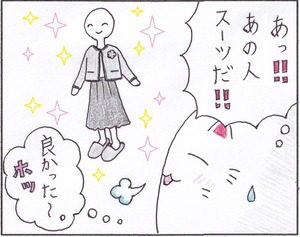 あっ!!
あの人
スーツだ!!
良かった〜。
ホッ